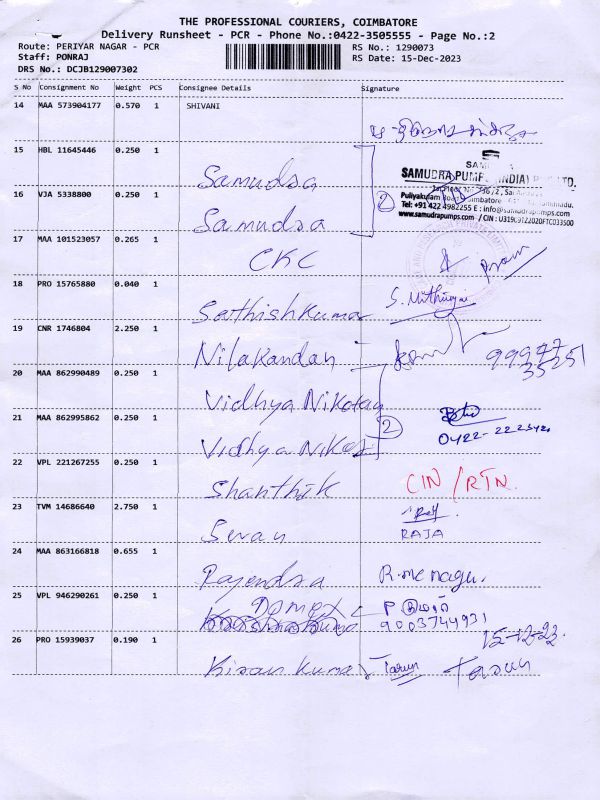 THE PROFESSIONAL COURIERS, COIMBATORE
Delivery Runsheet - PCR - Phone No.:0422-3505555 - Page No.:2
Route: PERIYAR NAGAR - PCR
RS No.: 1290073
Staff: PONRAJ
RS Date: 15-Dec-2023
DRS No.: DCJB129007302
S No Consignment No Weight PCS Consignee Details Signature
14 MAA 573904177 0.570 1 SHIVANI
15 HBL 11645446 0.250 1 Samudra
SAMUDRA PUMPS (INDIA) P LTD.
Puliyakulam Road, Coimbatore
Tel: +91 422 4982255 E : info@samudrapumps.com
www.samudrapumps.com / CIN : U31909TZ2020FTC033500
16 VJA 5338800 0.250 1 Samudra
2
17 MAA 101523057 0.265 1 CKC
18 PRO 15765880 0.040 1 Sathish Kumar
19 CNR 1746804 2.250 1 Nilakandan
99947
35251
20 MAA 862990489 0.250 1 Vidhya Niketan
21 MAA 862995862 0.250 1 Vidhya Niket
2
22 VPL 221267255 0.250 1 Shanthi K
CIN / RTN.
23 TVM 14686640 2.750 1 Sevan
RAJA
24 MAA 863166818 0.655 1 Rajendra
25 VPL 946290261 0.250 1 Domex
9003744931
26 PRO 15939037 0.190 1 Kiran Kumar Tarun Tarun
15-12-23.